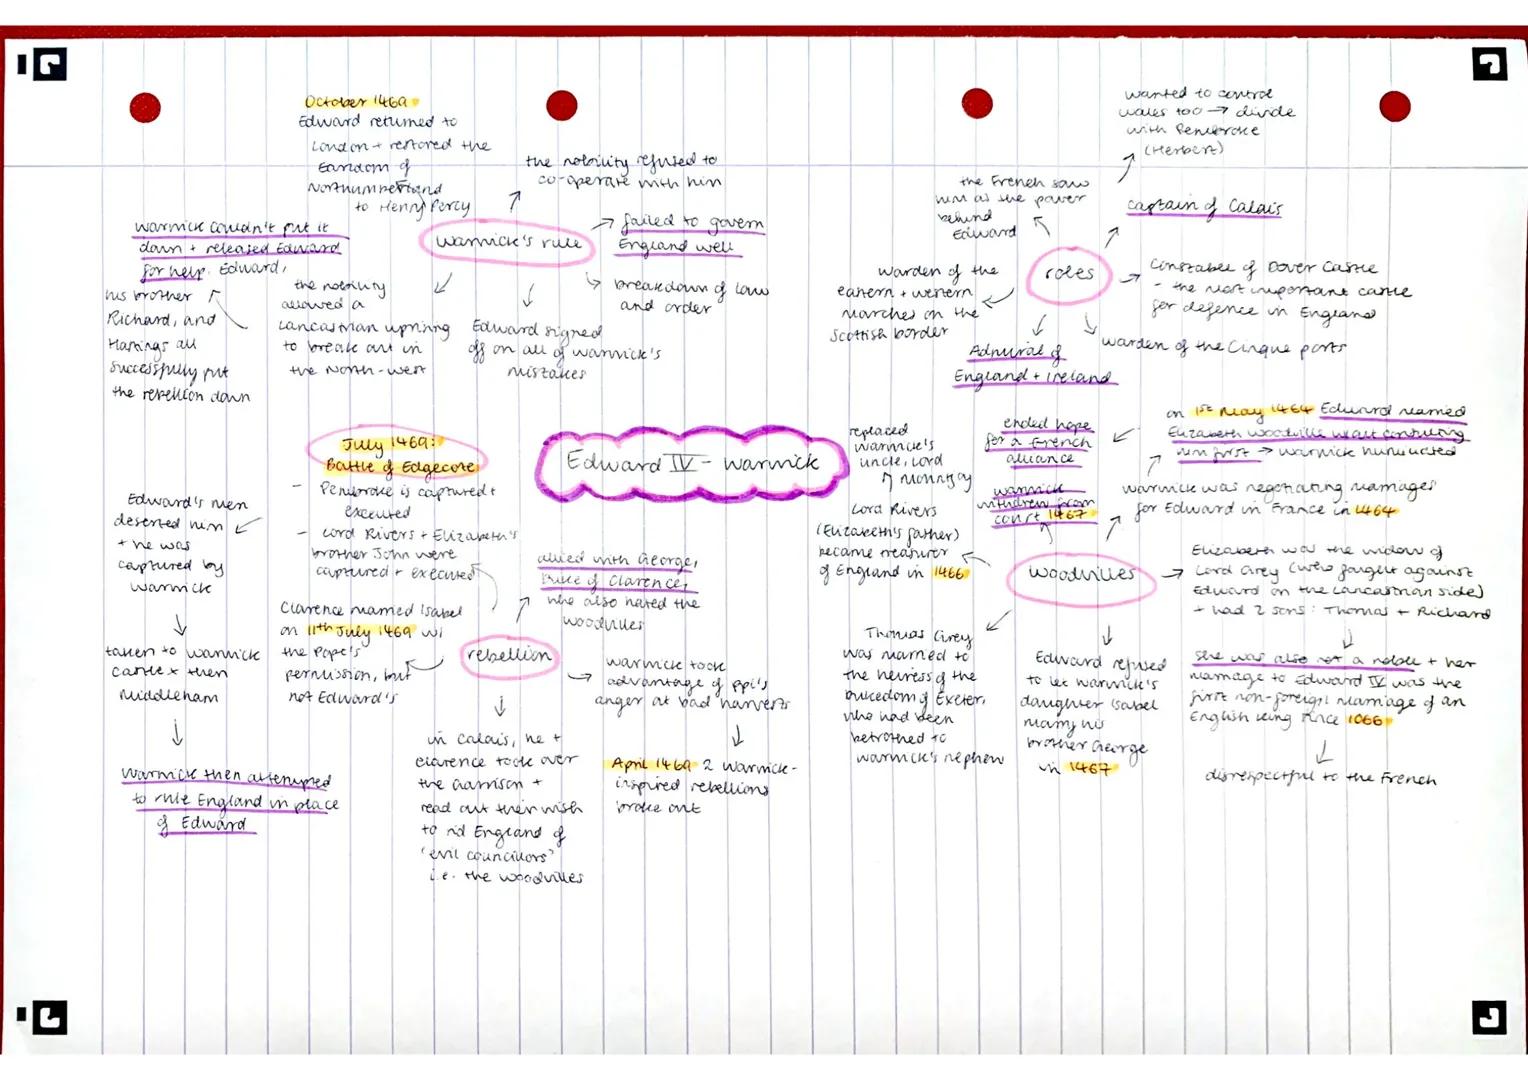 October 1469
Edward returned to
London + restored the
Earldom of
Northumberland
to Henry Percy
the nobility refused to
co-operate with him
warwick's rule
failed to govern
England well
breakdown of law
and order
Edward signed
off on all of warwick's
mistakes
the nobility
allowed a
Lancastrian uprising
to break out in
the North-west
warwick couldn't put it
down + released Edward
for help. Edward,
his brother
Richard, and
Hastings all
successfully put
the rebellion down
wanted to control
wales too → divide
with Pembroke
(Herbert)
the French saw
him as the power
behind
Edward
captain of Calais
roles
Constable of Dover Castle
- the most important castle
for defence in England
warden of the Cinque ports
Admiral of
England + Ireland
warden of the
eastern + western
marches on the
Scottish border
Edward IV - Warwick
July 1469:
Battle of Edgecote
- Pembroke is captured +
executed
- Lord Rivers + Elizabeth's
brother John were
captured + executed
Edward's men
deserted him
+ he was
captured by
warwick
taken to warwick
castle + then
Middleham
Warwick then attempted
to rule England in place
of Edward
Clarence married Isabel
on 11th July 1469 w/
the Pope's
permission, but
not Edward's
rebellion
allied with George,
Duke of Clarence,
who also hated the
woodvilles
warwick took
advantage of ppl's
anger at bad harvests
April 1469 2 Warwick-
inspired rebellions
broke out
in Calais, he +
clarence took over
the garrison +
read out their wish
to rid England of
'evil councillors'
i.e. the woodvilles
replaced
warwick's
uncle, Lord
Mountjoy
Lord Rivers
(Elizabeth's father)
became treasurer
of England in 1466
ended hope
for a French
alliance
warwick
withdrew from
court 1467
on 1st May 1464 Edward married
Elizabeth woodville w/out consulting
him first → warwick humiliated
warwick was negotiating marriages
for Edward in France in 1464
woodvilles
Elizabeth was the widow of
Lord Grey (who fought against
Edward on the Lancastrian side)
+ had 2 sons: Thomas + Richard
she was also not a noble + her
marriage to Edward IV was the
first non-foreign marriage of an
English king since 1066
disrespectful to the French
Edward refused
to let warwick's
daughter Isabel
marry his
brother George
in 1467
Thomas Grey
was married to
the heiress of the
Dukedom of Exeter,
who had been
betrothed to
warwick's nephew